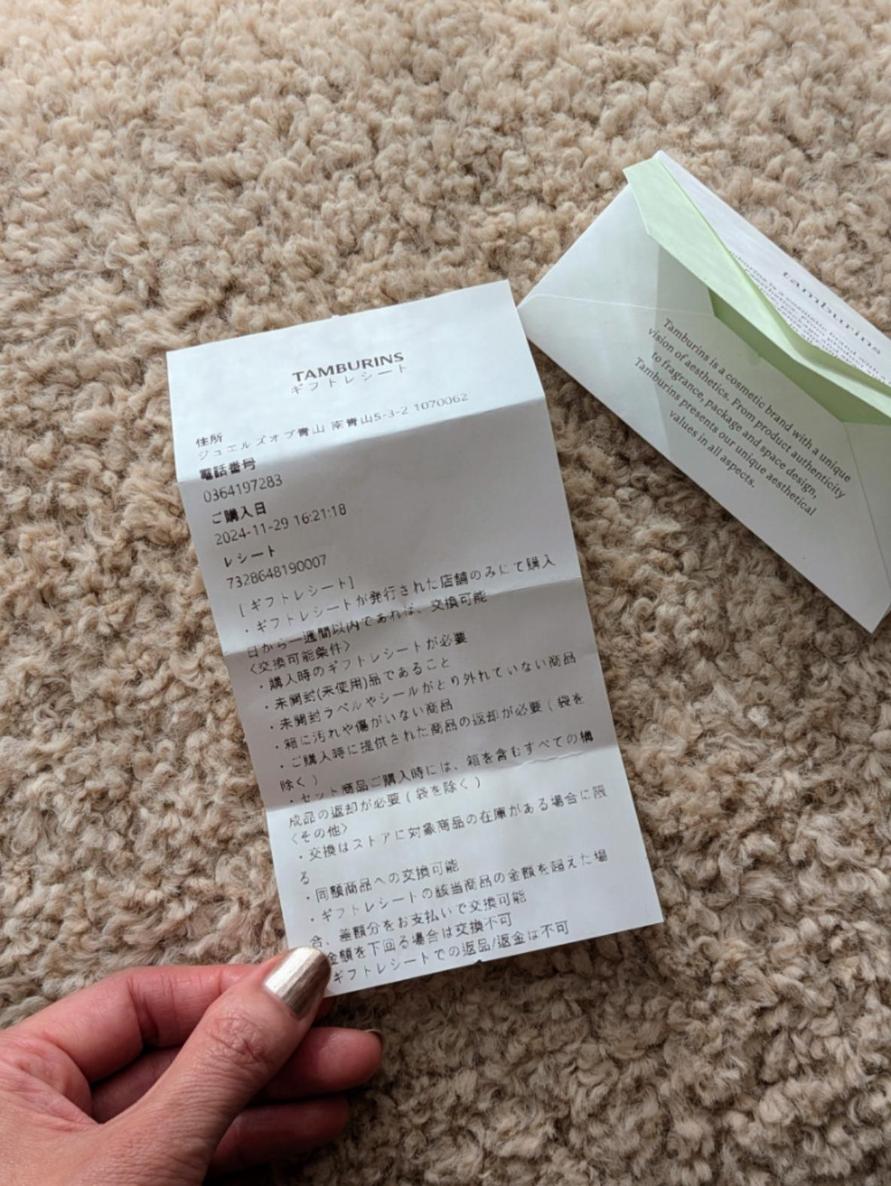 TAMBURINS
ギフトレシート
住所
ジュエルズオブ青山 南青山5-3-2 1070062
電話番号
0364197283
ご購入日
2024-11-29 16:21:18
レシート
7328648190007
[ギフトレシート]
・ギフトレシートが発行された店舗のみにて購入
日から一週間以内であれば、交換可能
〈交換可能条件〉
・購入時のギフトレシートが必要
・未開封(未使用)品であること
・未開封ラベルやシールがとり外れていない商品
・箱に汚れや傷がいない商品
・ご購入時に提供された商品の返却が必要(袋を
除く)
・セット商品ご購入時には、箱を含むすべての構
成品の返却が必要(袋を除く)
〈その他〉
・交換はストアに対象商品の在庫がある場合に限
る
・同額商品への交換可能
・ギフトレシートの該当商品の金額を超えた場
合、差額分をお支払いで交換可能
金額を下回る場合は交換不可
ギフトレシートでの返品/返金は不可
tamburins
Tamburins is a cosmetic brand with a unique
vision of aesthetics. From product authenticity
to fragrance, package and space design,
Tamburins presents our unique aesthetical
values in all aspects.